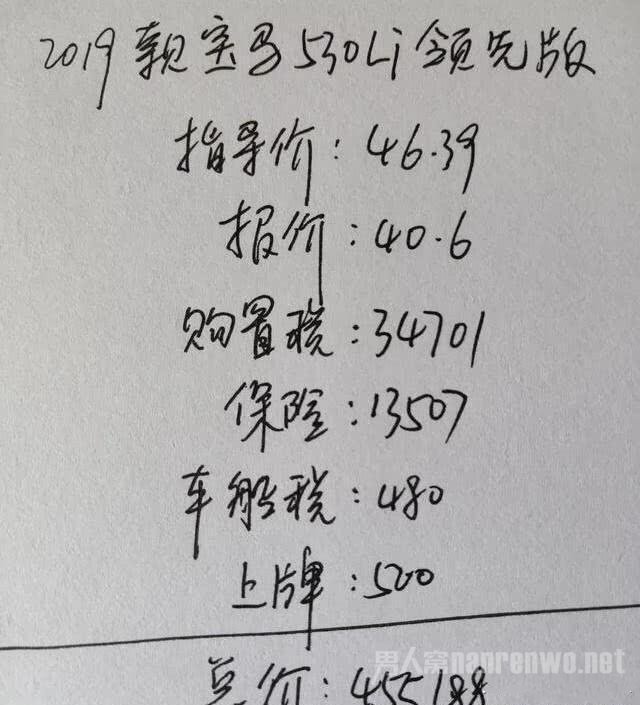 2019款宝马530Li领先版
指导价：46.39
报价：40.6
购置税：34701
保险：13507
车船税：480
上牌：500
总价：455188
男人窝nanrenwo.net